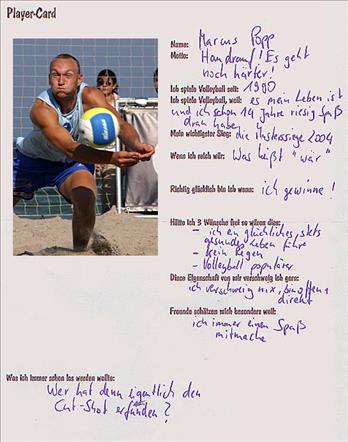 Player-Card
Name: Marcus Popp
Motto: Handrauf! Es geht
noch härter!
Ich spiele Volleyball seit: 1990
Ich spiele Volleyball, weil: es mein Leben ist
und ich schon 14 Jahre riesig Spaß
dran habe
Mein wichtigster Sieg: die 2004
Wenn ich reich wär: Was heißt "wär"
Richtig glücklich bin ich wenn: ich gewinne!
Hätte ich 3 Wünsche frei so wären dies:
- ich ein glückliches, stets
gesundes Leben führe
- kein Regen
- Volleyball populärer
Diese Eigenschaft von mir verschweig ich gern:
ich verschweig nix, bin offen +
direkt
Freunde schätzen mich besonders weil:
ich immer einen Spaß
mitmache
Was ich immer schon los werden wollte:
Wer hat denn eigentlich den
Cut-Shot erfunden?